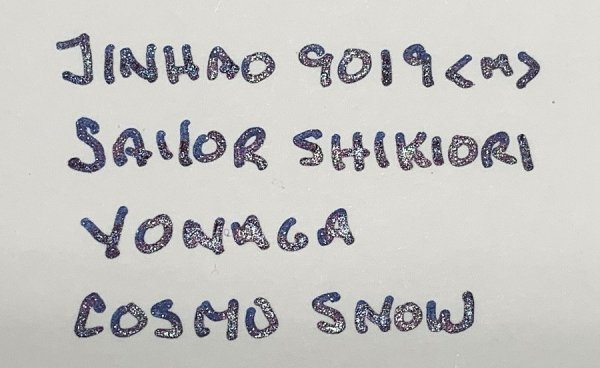 JINHAO 9019 <M>
SAILOR SHIKIORI
YONAGA
COSMO SNOW